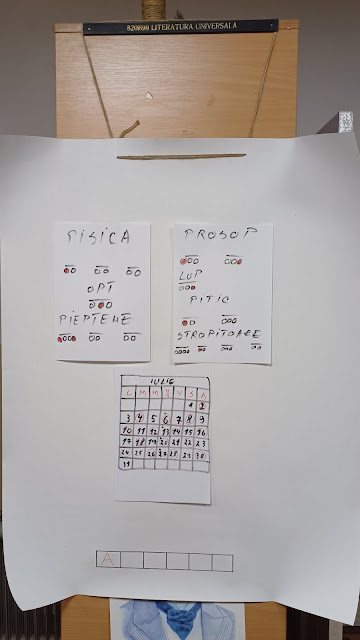 820/899 LITERATURA UNIVERSALA
PISICA
OPT
PIEPTENE
PROSOP
LUP
PITIC
STROPITOARE
IULIE
L M M J V S D
1 2
3 4 5 6 7 8 9
10 11 12 13 14 15 16
17 18 19 20 21 22 23
24 25 26 27 28 29 30
31
A